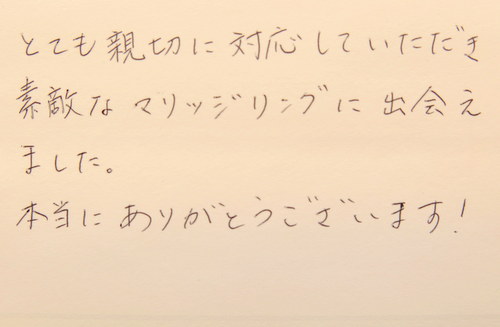 とても親切に対応していただき
素敵なマリッジリングに出会え
ました。
本当にありがとうございます!